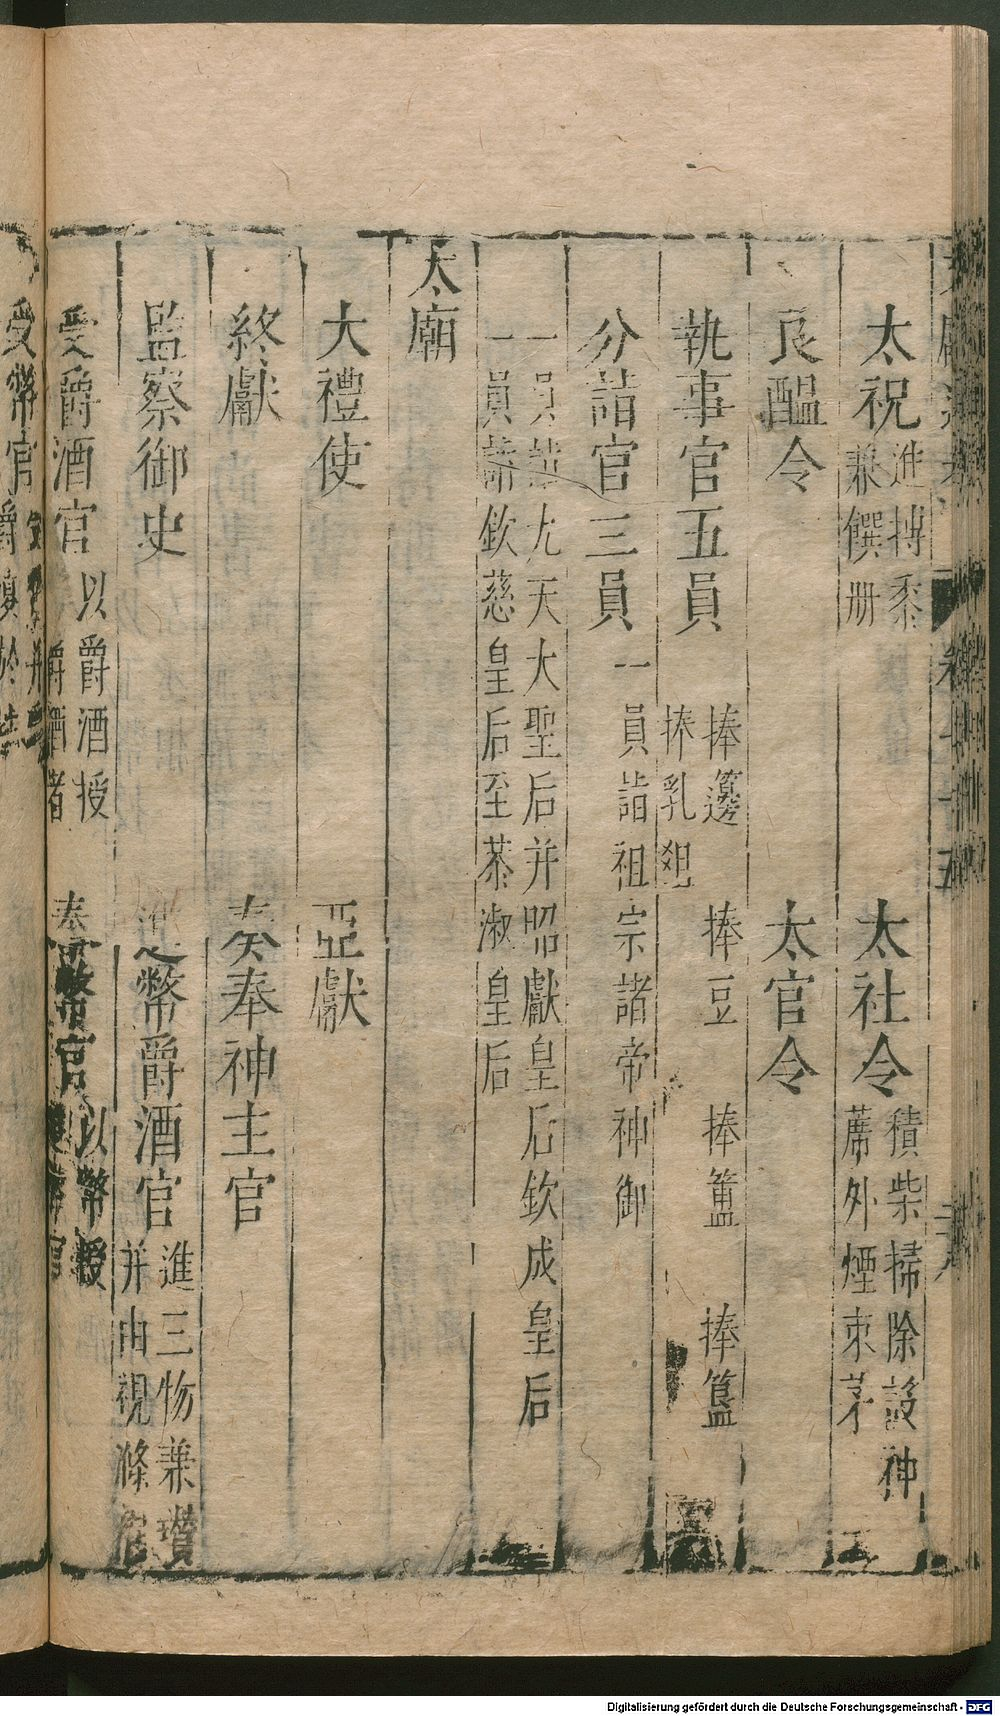 太祝 進摶黍兼饌册 太社令 積柴掃除設神蓆外煙朿茅
良醞令 太官令
執事官五員 捧籩 捧豆 捧簠 捧簋 捧乳
分詣官三員 一員詣祖宗諸帝神御
一員詣九天大聖后并昭獻皇后欽成皇后
一員詣欽慈皇后至恭淑皇后
太廟
大禮使 亞獻
終獻 奏奉神主官
監察御史 進幣爵酒官 進三物兼瓚并由視滌
受爵酒官 以爵酒授爵酒者 奉幣官 以幣授幣官
受幣官
Digitalisierung gefördert durch die Deutsche Forschungsgemeinschaft - DFG